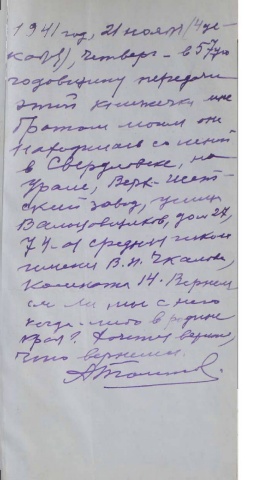 1941 год, 21 ноября (4 де-
кабря), Четверг - в 57ую
годовщину передачи
этой книжечки мне
братом моим он
находилась со мной
в Свердловске, на
Урале, Верх-Исет-
ский завод, улица
Вальцовщиков, дом 27,
74-ая средняя школа
имени В. П. Чкалова,
комната 14. Вернем
ся ли мы с нею
когда-либо в родные
края? Хочется верить,
что вернемся.